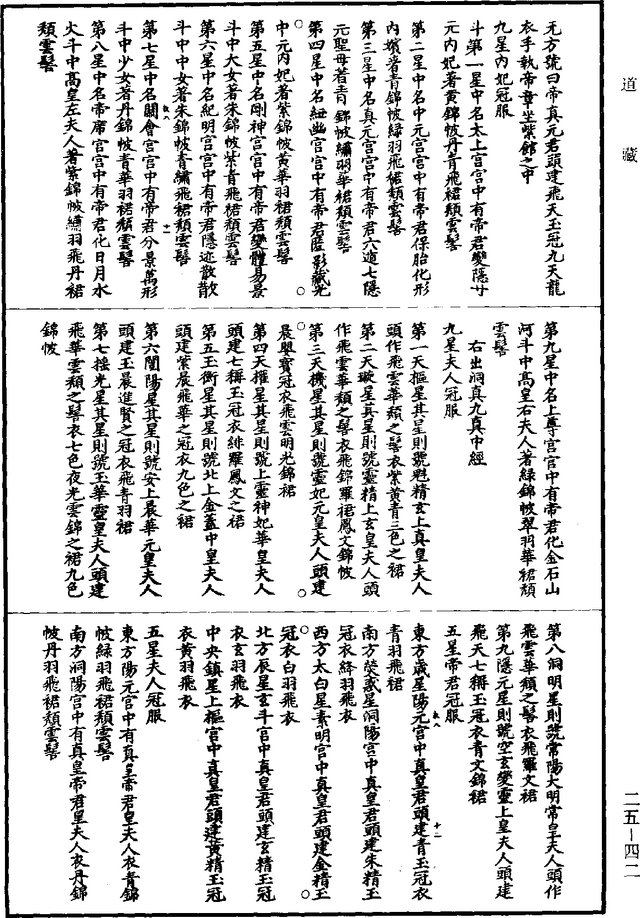 道藏
无方號曰帝真元君頭建飛天玉冠九天龍
衣手執帝章坐紫館之中
九星内妃冠服
斗第一星中名太上宫宫中有帝君變隱
元内妃著黄錦帔丹青飛裙頹雲髻
第二星中名中元宫宫中有帝君保胎化形
内嬪著青錦帔緑羽飛裙頹雲髻
第三星中名真元宫宫中有帝君六遁七隱
元聖母著青錦帔繡羽華裙頹雲髻
第四星中名紐幽宫宫中有帝君匿影藏光
中元内妃著紫錦帔黄華羽裙頹雲髻
第五星中名剛神宫宫中有帝君變體易景
斗中大女著朱錦帔紫青飛裙頹雲髻
第六星中名紀明宫宫中有帝君隱迹散
斗中中女著朱錦帔青繡飛裙頹雲髻
第七星中名關會宫宫中有帝君分景萬形
斗中少女著丹錦帔青華羽裙頹雲髻
第八星中名帝席宫宫中有帝君化日月水
火斗中高皇左夫人著紫錦帔繡羽飛丹裙
頹雲髻
第九星中名上尊宫宫中有帝君化金石山
河斗中高皇右夫人著緑錦帔翠羽華裙頹
雲髻
右出洞真九真中經
九星夫人冠服
第一天樞星其星則號魁精玄上真皇夫人
頭作飛雲華頹之髻衣紫黄青三色之裙
第二天璇星真星則號靈精上玄皇夫人頭
作飛雲華頹之髻衣飛錦羅裙鳳文錦帔
第三天機星其星則號靈妃元皇夫人頭建
晨嬰寶冠衣飛雲明光錦裙
第四天權星其星則號上靈神妃華皇夫人
頭建七稱玉冠衣緋羅鳳文之裙
第五玉衡星其星則號北上金蓋中皇夫人
頭建紫晨飛華之冠衣九色之裙
第六闓陽星其星則號安上晨華元皇夫人
頭建玉晨進賢之冠衣飛青羽裙
第七摇光星其星則號玉華靈皇夫人頭建
飛華雲頹之髻衣七色夜光雲錦之裙九色
錦帔
第八洞明星則號常陽大明常皇夫人頭作
飛雲華頹之髻衣飛羅文裙
第九隱元星則號空玄變靈上皇夫人頭建
飛天七稱玉冠衣青文錦裙
五星帝君冠服
東方歲星陽元宫中真皇君頭建青玉冠衣
青羽飛裙
南方熒惑星洞陽宫中真皇君頭建朱精玉
冠衣絳羽飛衣
西方太白星素明宫中真皇君頭建金精玉
冠衣白羽飛衣
北方辰星玄斗宫中真皇君頭建玄精玉冠
衣玄羽飛衣
中央鎮星上樞宫中真皇君頭建黄精玉冠
衣黄羽飛衣
五星夫人冠服
東方陽元宫中有真皇帝君皇夫人衣青錦
帔緑羽飛裙頹雲髻
南方洞陽宫中有真皇帝君皇夫人衣丹錦
帔丹羽飛裙頹雲髻
二五-四二